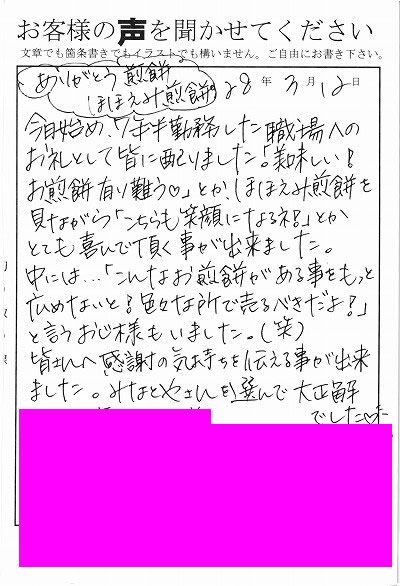 お客様の声を聞かせてください
文章でも箇条書きでもイラストでも構いません。ご自由にお書き下さい。
ありがとう煎餅
ほほえみ煎餅
28年3月12日
今日始め、7年半勤務した職場への
お礼として皆に配りました。「美味しい！
お煎餅有り難う♡」とか、ほほえみ煎餅を
見ながら「こちらも笑顔になるネ！」とか
とても喜んで頂く事が出来ました。
中には…「こんなお煎餅がある事をもっと
広めないと！色々な所で売るべきだよ！」
と言うおじ様もいました。（笑）
皆さんへ感謝の気持ちを伝える事が出来
ました。みなとやさんを選んで大正解
でした